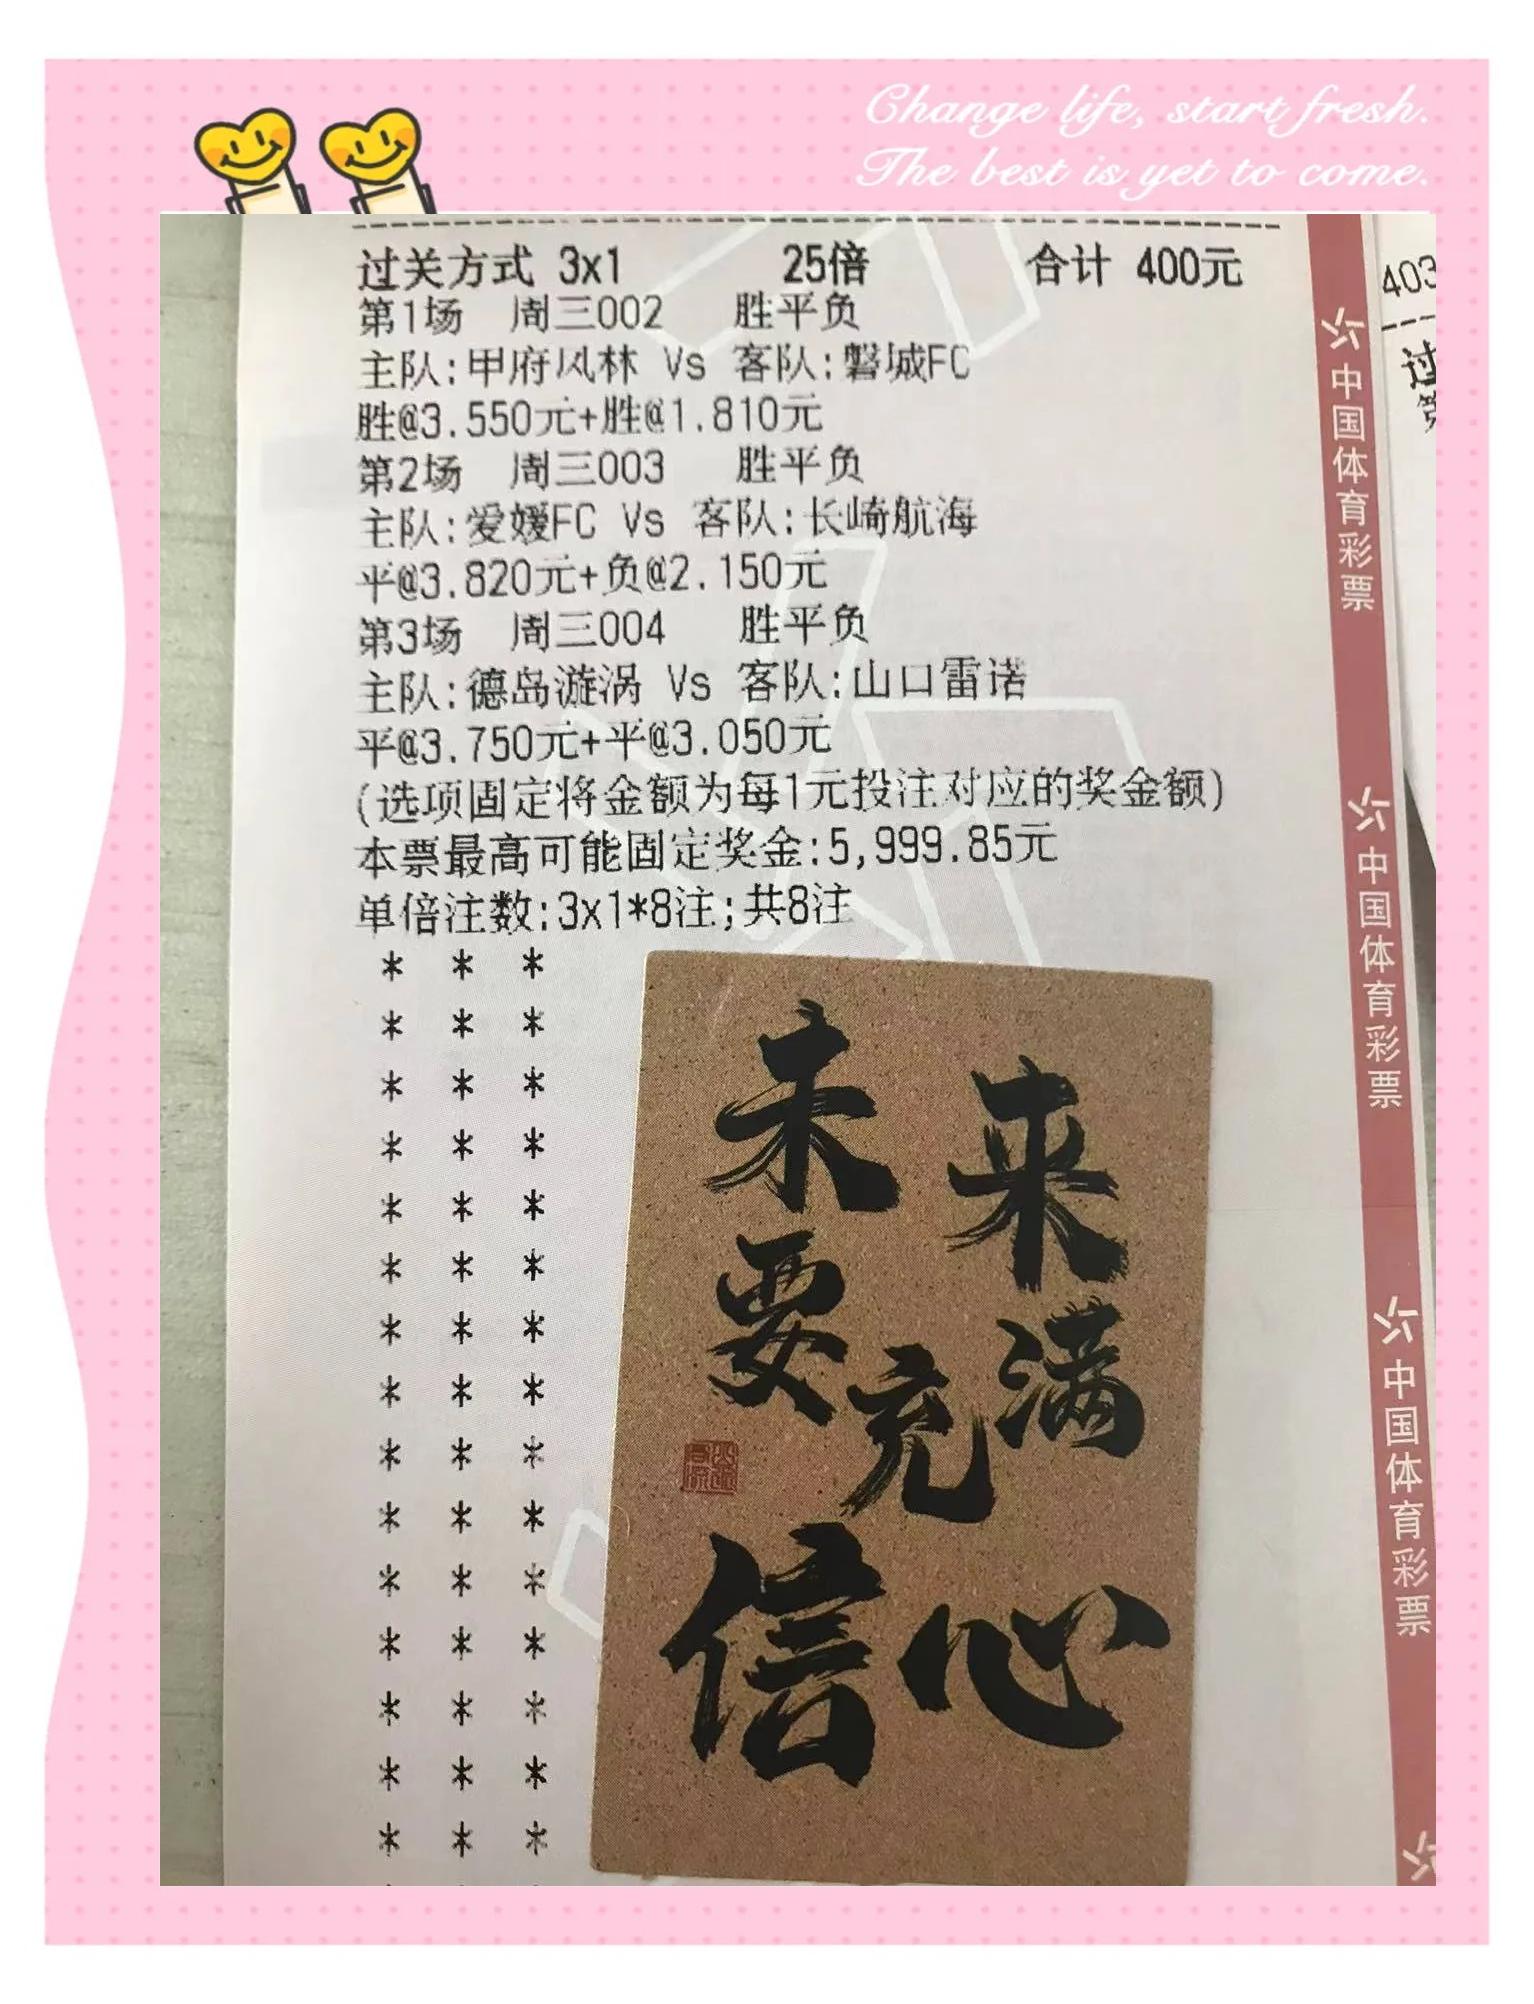 Change life, start fresh.
The best is yet to come.
过关方式 3x1 25倍 合计 400元
第1场 周三002 胜平负
主队:甲府风林 Vs 客队:磐城FC
胜@3.550元+胜@1.810元
第2场 周三003 胜平负
主队:爱媛FC Vs 客队:长崎航海
平@3.820元+负@2.150元
第3场 周三004 胜平负
主队:德岛漩涡 Vs 客队:山口雷诺
平@3.750元+平@3.050元
(选项固定将金额为每1元投注对应的奖金额)
本票最高可能固定奖金:5,999.85元
单倍注数:3x1*8注;共8注
* * *
* * *
* * *
* * *
* * *
* * *
* * *
* * *
* * *
* * *
* * *
* * *
* * *
* * *
* * *
未来
要充满
信心
中国体育彩票
中国体育彩票
中国体育彩票
403
过